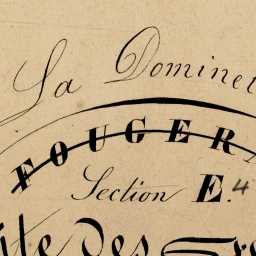 La Dominel
FOUGER
Section E.4
des